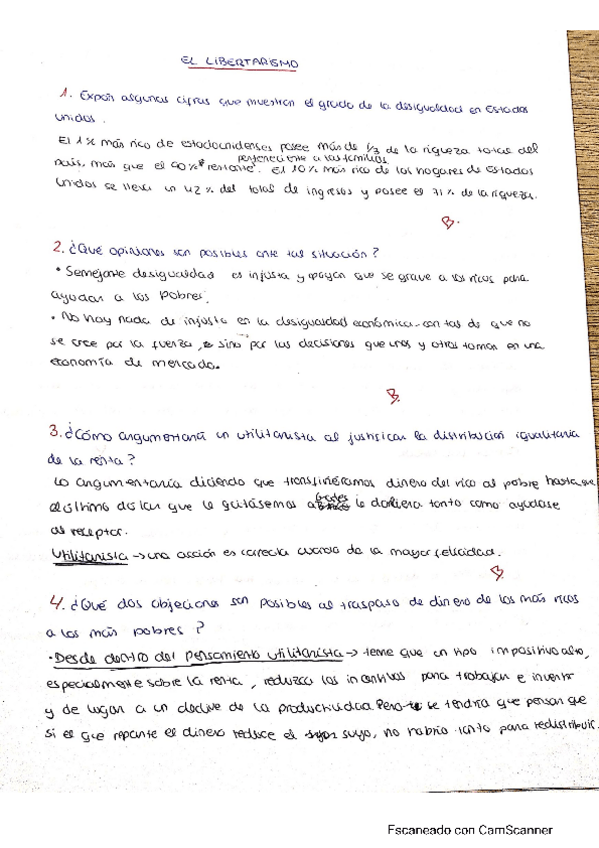 EL LIBERTARISMO
1. Expón algunas cifras que muestran el grado de la desigualdad en Estados
Unidos.
El 1% más rico de estadounidenses posee más de 1/3 de la riqueza total del
perteneciente a las familias
país, más que el 90% restante. El 10% más rico de los hogares de Estados
Unidos se lleva un 42% del total de ingresos y posee el 71% de la riqueza.
B.
2. ¿Qué opiniones son posibles ante tal situación?
• Semejante desigualdad es injusta y apoyan que se grave a los ricos para
ayudar a los pobres.
• No hay nada de injusto en la desigualdad económica con tal de que no
se cree por la fuerza, sino por las decisiones que unos y otros toman en una
economía de mercado.
B.
3. ¿Cómo argumentaría un utilitarista al justificar la distribución igualitaria
de la renta?
Lo argumentaría diciendo que transfiriéramos dinero del rico al pobre hasta que
el último dólar que le quitásemos a Gates le doliera tanto como ayudase
al receptor.
Utilitarista → una acción es correcta cuando da la mayor felicidad.
B
4. ¿Qué dos objeciones son posibles al traspaso de dinero de los más ricos
a los más pobres?
• Desde dentro del pensamiento utilitarista → teme que un tipo impositivo alto,
especialmente sobre la renta, reduzca los incentivos para trabajar e invertir
y de lugar a un declive de la productividad. Pero se tendría que pensar que
si el que reparte el dinero reduce el suyo, no habría tanto para redistribuir.
Escaneado con CamScanner